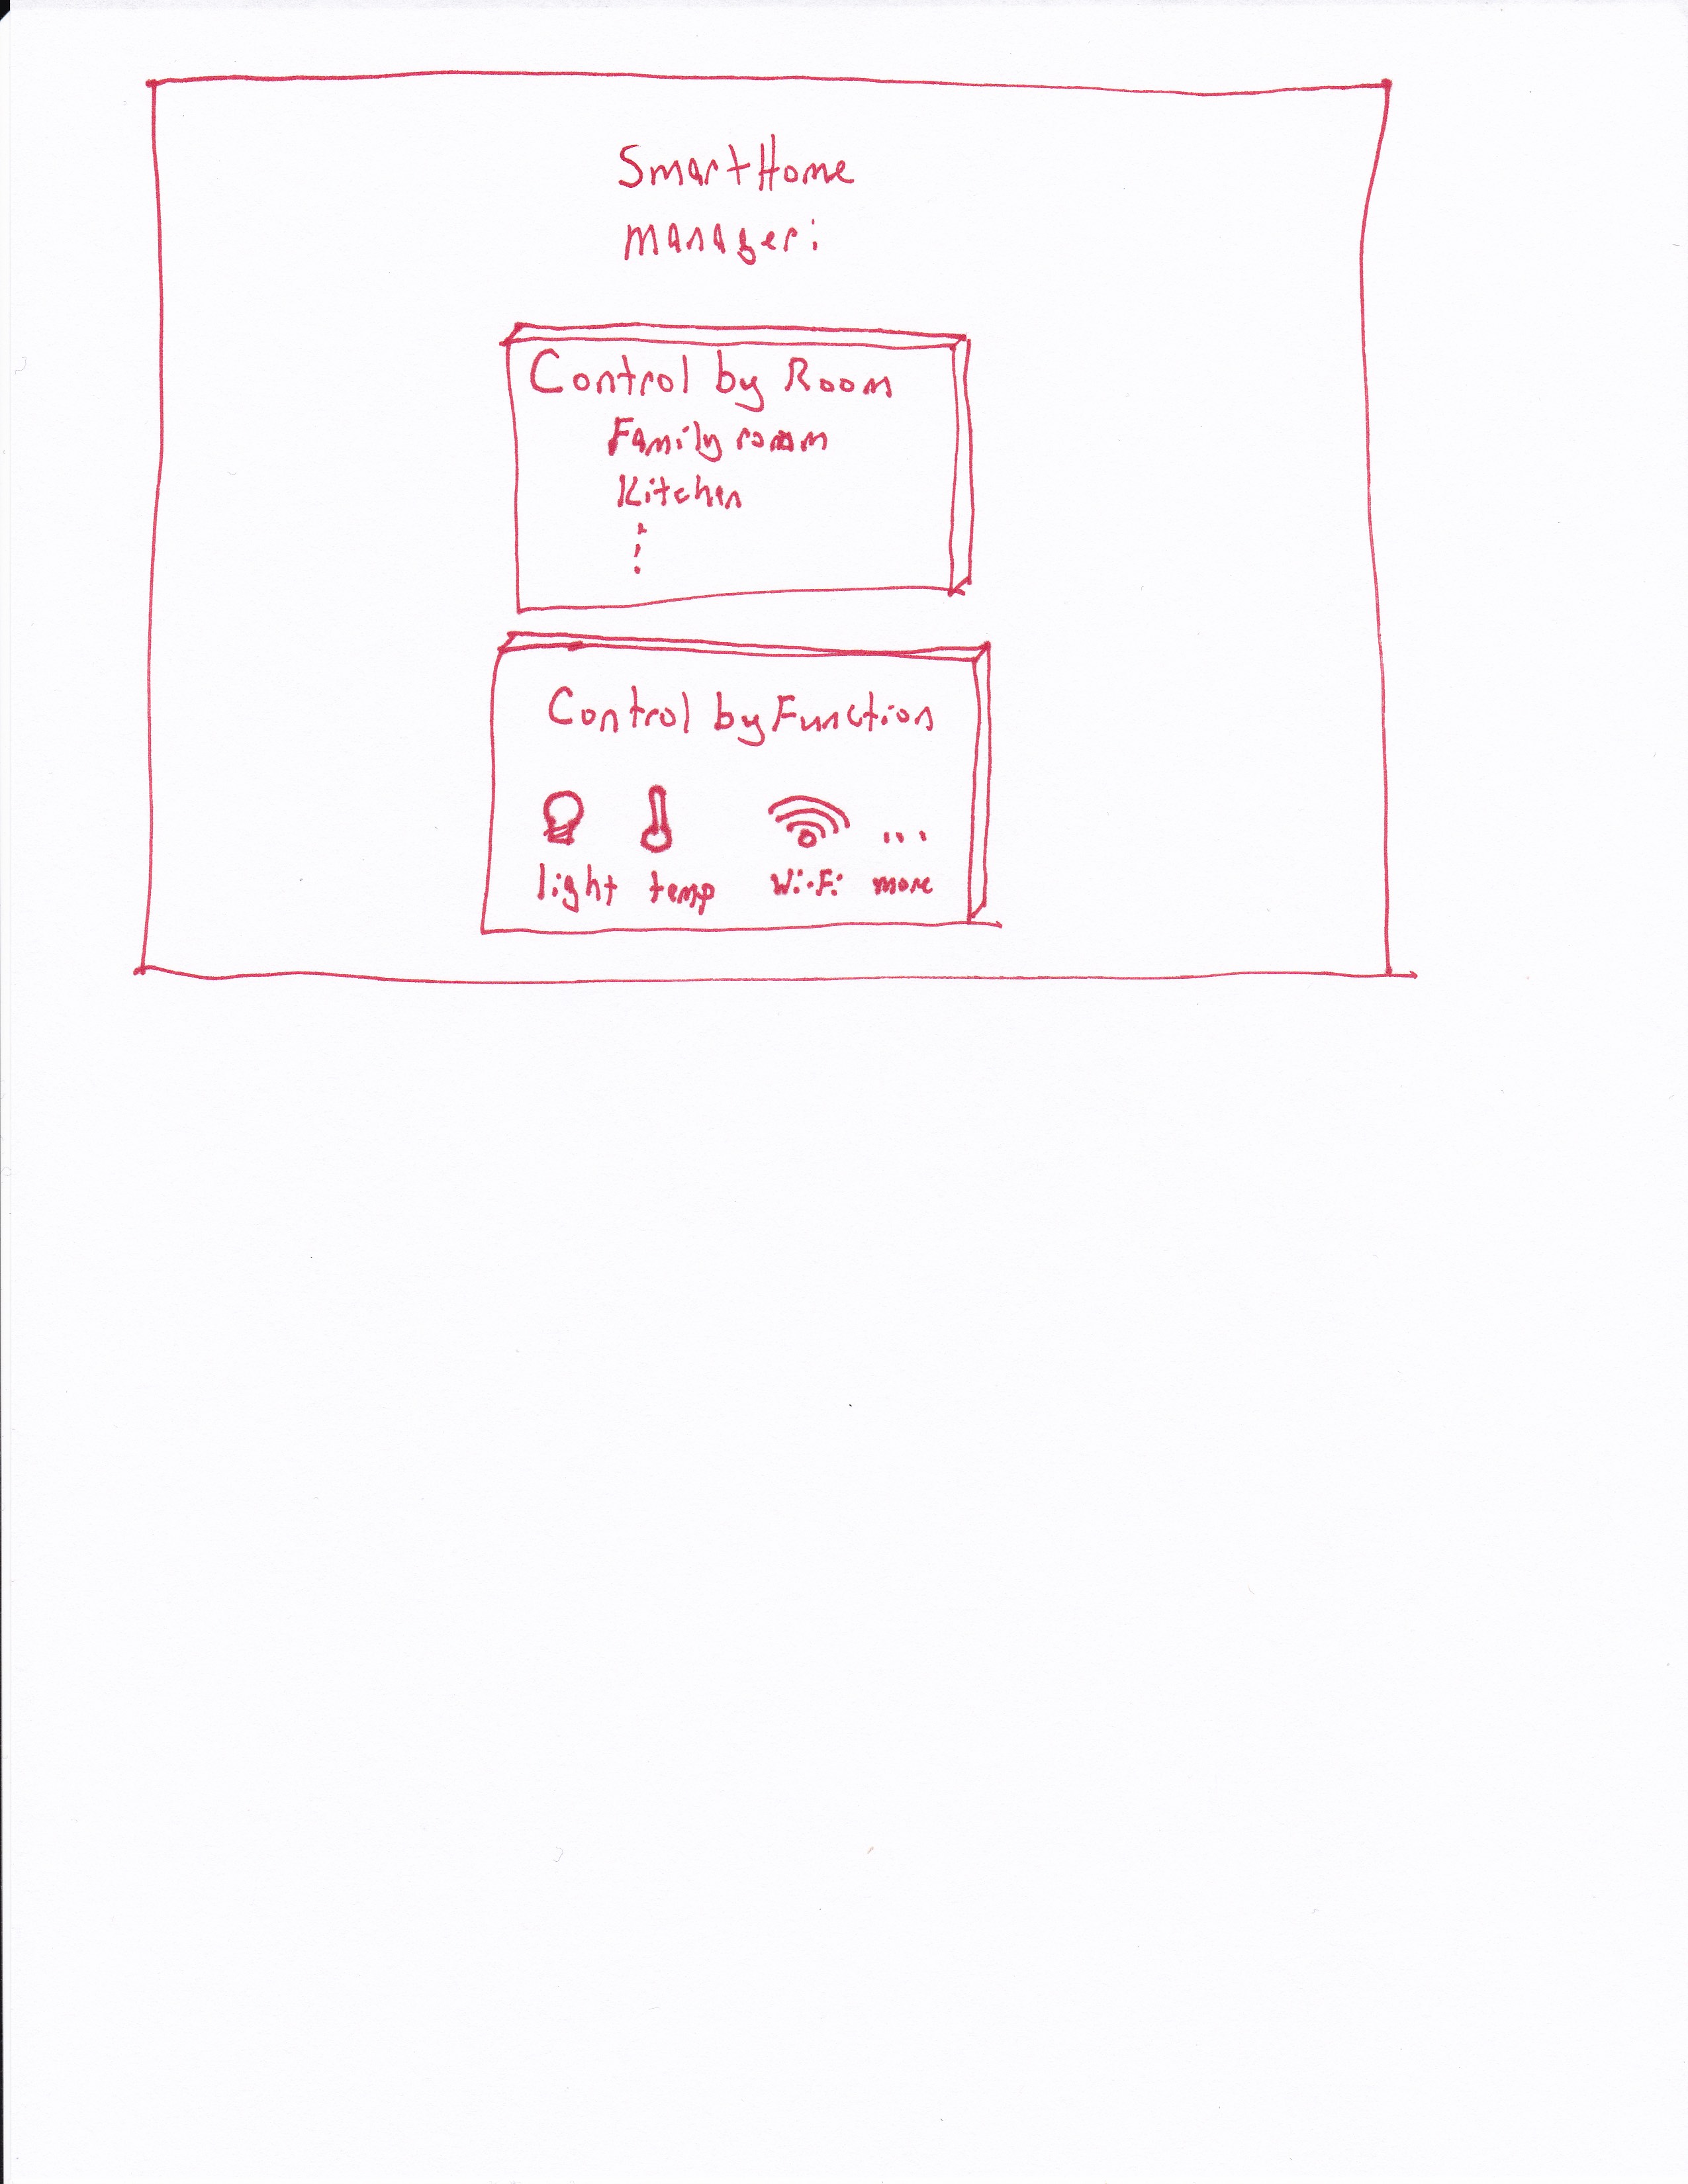 SmartHome
manager:
Control by Room
Family room
Kitchen
⋮
Control by Function
...
light temp Wi-Fi more